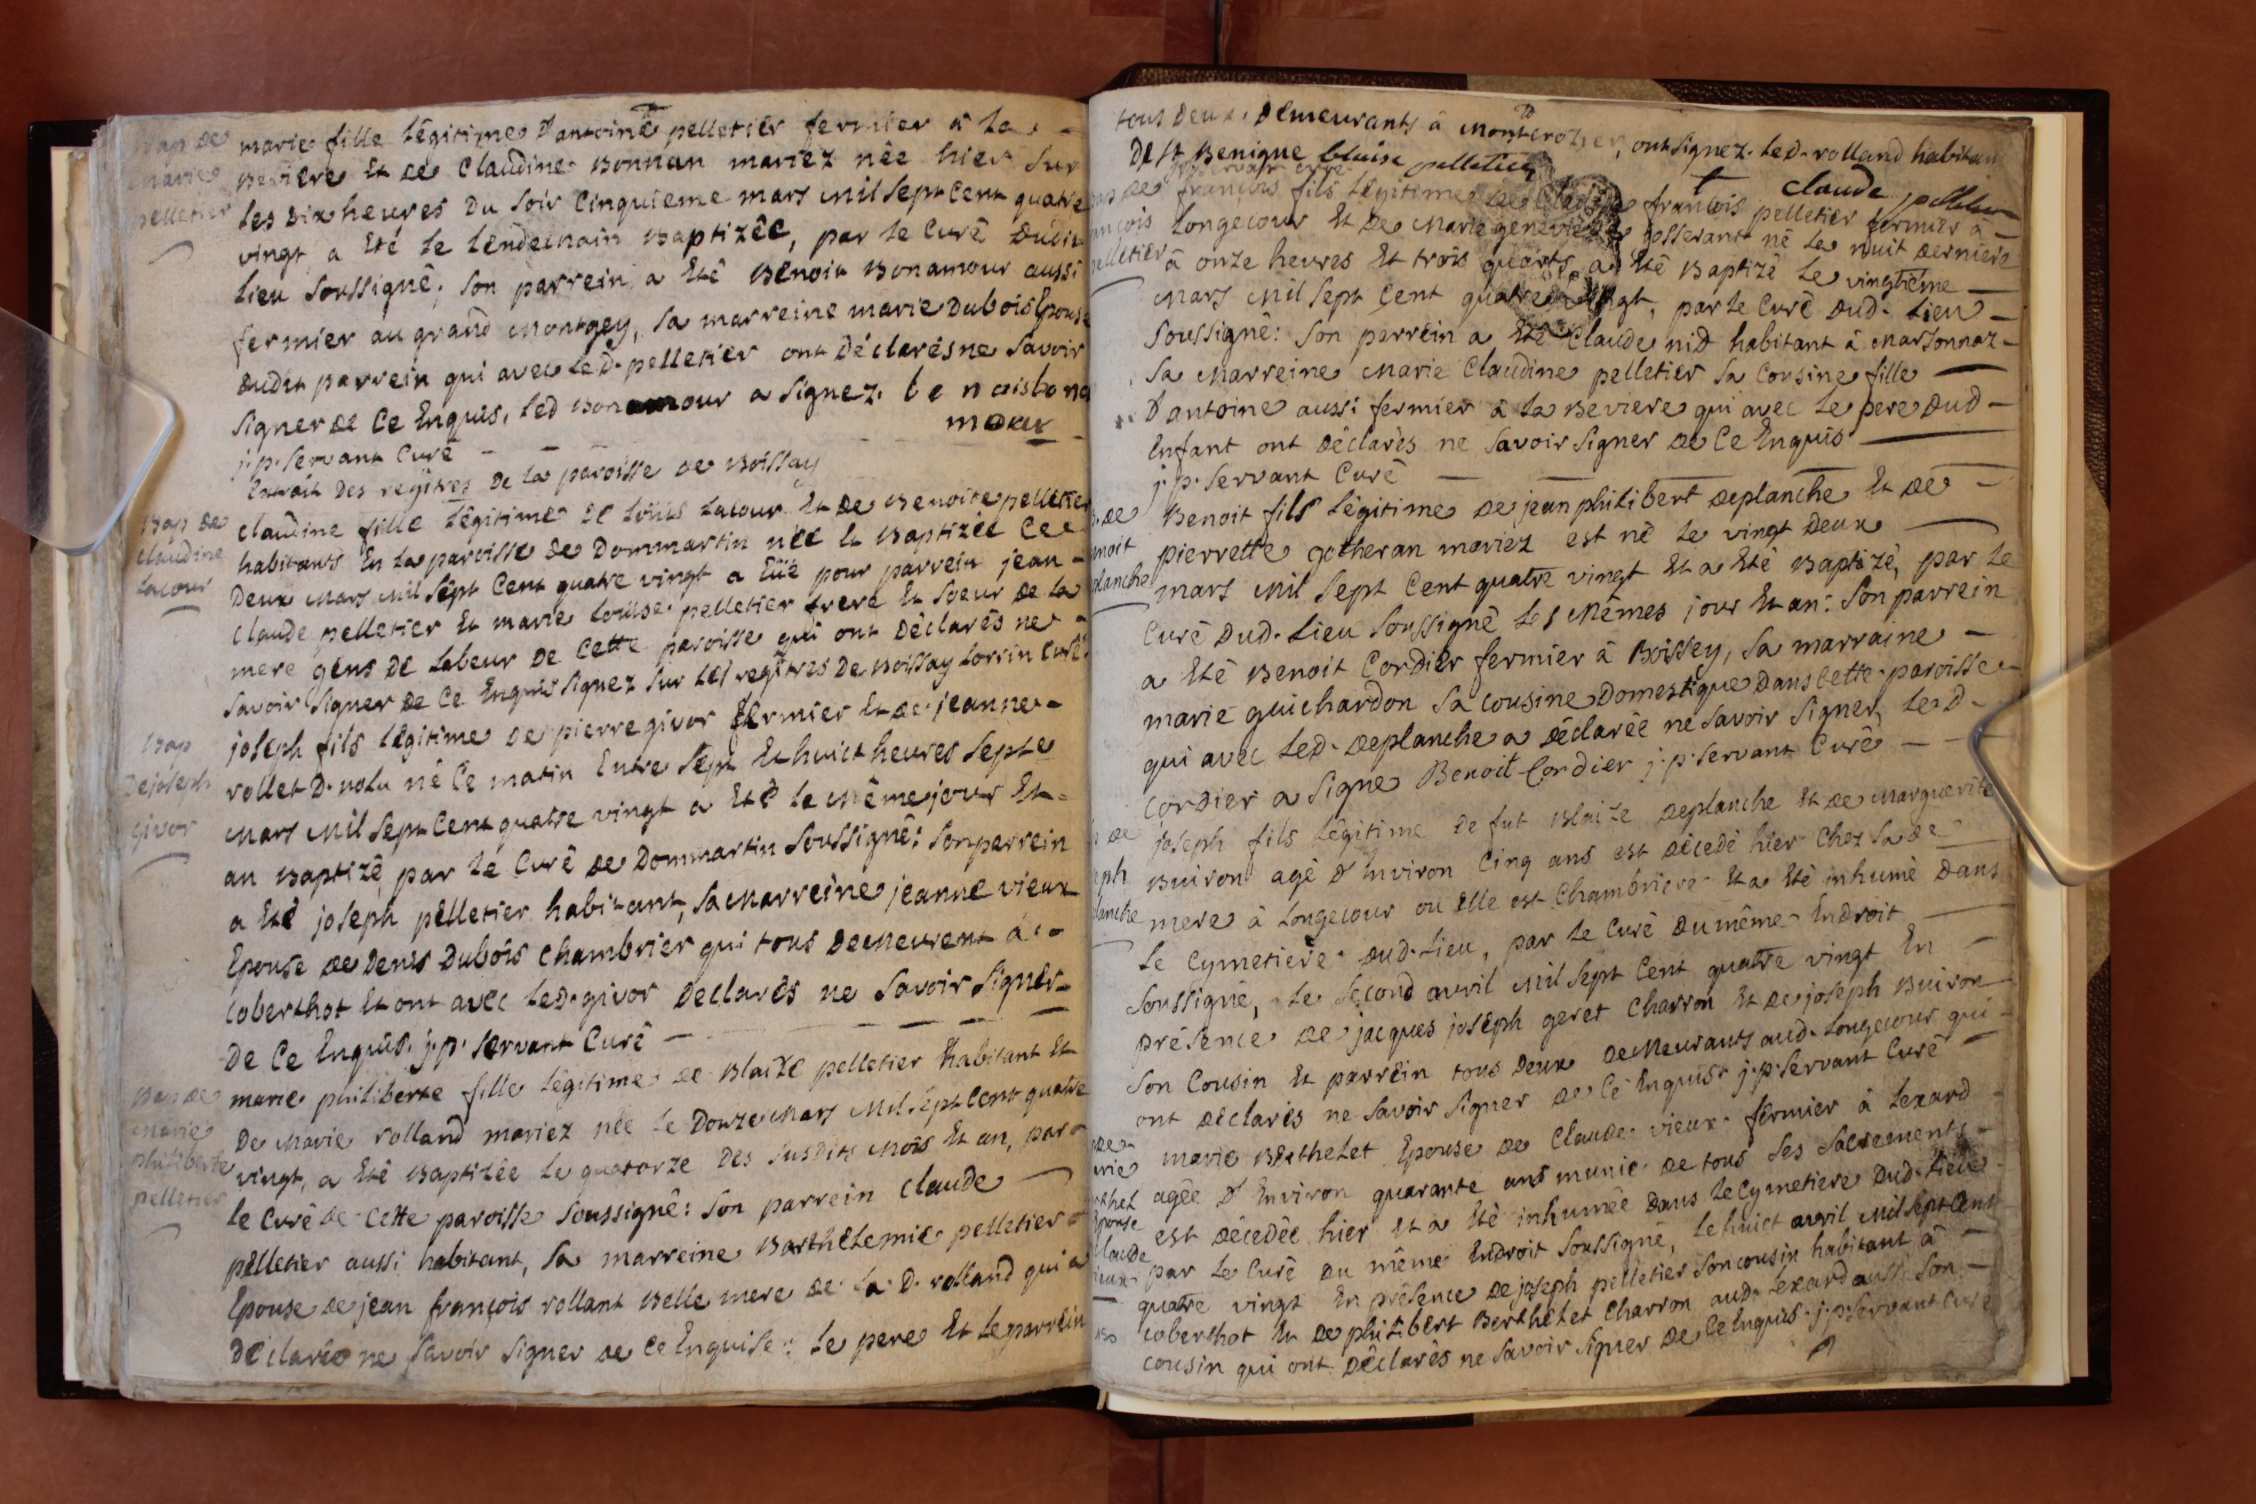 Bap de
marie
pelletier
marie fille légitime d'antoine pelletier fermier à la
Beviere Et de Claudine Bonnan mariez née hier sur
les dix heures du soir Cinquieme mars mil sept Cent quatre
vingt a Eté le lendemain Baptizée, par le Curé dudit
lieu soussigné; son parrein a Eté Benoit Bonamour aussi
fermier au grand Montgey, sa marreine marie Dubois Epouse
dudit parrein qui avec led. pelletier ont déclarés ne savoir
signer de Ce Enquis, led Bonamour a signez. be noisbona
mour
j. p. servant Curé
Extrait des regitres de la paroisse de Boissay
Bap de
claudine
lacour
claudine fille légitime de louis lacour Et de Benoite pelletier
habitans En la paroisse de Dommartin née Et Baptizée Ce
Deux mars mil sept Cent quatre vingt a Eüe pour parrein jean
claude pelletier Et marie louise pelletier frere Et soeur de la
mere gens de labeur de Cette paroisse qui ont déclarés ne
savoir signer de Ce Enquis signez sur les regitres de Boissay Lorrin Curé
Bap
De joseph
givor
joseph fils légitime de pierre givor fermier Et de jeanne
rollet D. volu né Ce matin Entre sept Et huict heures sept
mars mil sept Cent quatre vingt a Eté le même jour Et
an Baptizé par le Curé de Dommartin soussigné: son parrein
a Eté joseph pelletier habitant, sa marreine jeanne vieux
Epouse de denis Dubois Chambrier qui tous demeurent à
coberthot Et ont avec led. givor declarés ne savoir signer
de Ce Enquis. j. p. servant Curé
Bap de
marie
philiberte
pelletier
marie philiberte fille légitime de Blaize pelletier habitant Et
De marie rolland mariez née le Douze mars mil sept Cent quatre
vingt, a Eté Baptizée le quatorze des susdits mois Et an, par
le Curé de Cette paroisse soussigné: son parrein claude
pelletier aussi habitant, sa marreine Barthelemie pelletier
Epouse de jean françois rollant Belle mere de la D. rolland qui a
déclarée ne savoir signer de Ce Enquise: le pere Et le parrein
tous deux demeurants à Montcrozier, ont signez. led. rolland habitan
De st Benigne blaise pelletier
claude pelletier
j p servant curé
de
ançois
pelletier
françois fils légitime de Claude françois pelletier fermier à
Longecour Et De Marie genevieve josserant né la nuit derniere
à onze heures Et trois quarts a Eté Baptizé le vingtiéme
Mars Mil sept Cent quatre vingt, par le Curé dud. Lieu
soussigné: son parrein a Eté Claude nid habitant à Marsonnaz
sa Marreine Marie Claudine pelletier sa Cousine fille
d'antoine aussi fermier à la Beviere qui avec le pere dud
Enfant ont déclarès ne savoir signer de Ce Enquis
j. p. servant Curé
de
noit
planche
Benoit fils légitime de jean philibert deplanche Et de
pierrette gotheran mariez est né le vingt Deux
mars Mil sept Cent quatre vingt Et a Eté Baptizé, par le
Curé dud. Lieu soussigné les Mêmes jour Et an: son parrein
a Eté Benoit Cordier fermier à Boissey, sa marraine
marie guichardon sa cousine Domestique dans Cette paroisse
qui avec led. deplanche a déclarée ne savoir signer, le D.
Cordier a signe Benoit Cordier j. p. servant Curé
de
eph
lanche
joseph fils légitime de fut Blaize deplanche Et de Marguerite
Buiron agé d'Environ Cinq ans est décedé hier Chez sa de
mere à Longecour ou Elle est Chambriere Et a Eté inhumé Dans
le Cymetiere dud. Lieu, par le Curé du même Endroit
soussigné, le second avril Mil sept Cent quatre vingt En
présence de jacques joseph geret Charron Et de joseph Buiron
son Cousin Et parrein tous Deux demeurants aud. Longecour qui
ont déclarès ne savoir signer de Ce Enquis j. p. servant Curé
de
arie
rthet
Epouse
claude
vieux
marie Berthelet Epouse de Claude vieux fermier à Lexard
agée d'Environ quarante ans munie de tous ses sacrements
est décedée hier Et a Eté inhumée dans le Cymetiere dud. Lieu
par le Curé du même Endroit soussigné, le huict avril mil sept Cent
quatre vingt En présence de joseph pelletier son cousin habitant à
coberthot Et de philibert Berthelet Charron aud. Lexard aussi son
cousin qui ont déclarès ne savoir signer de Ce Enquis. j. p. servant Curé